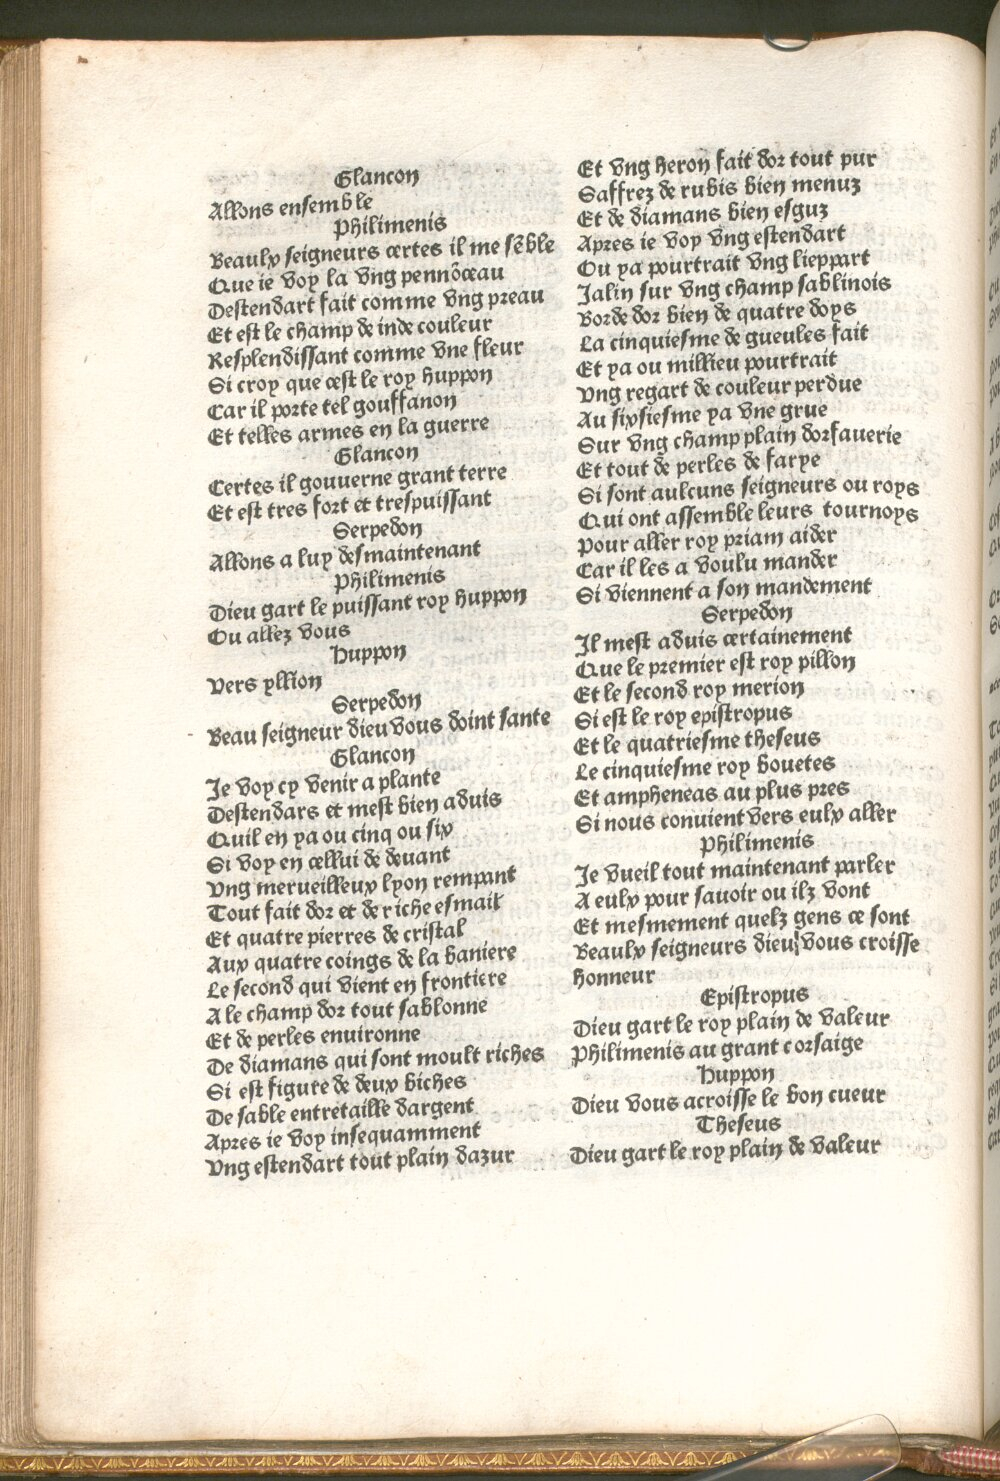 Glancon
Allons ensemble
Philimenis
Beaulx seigneurs certes il me sẽble
Que ie voy la vng pennõceau
Destendart fait comme vng preau
Et est le champ de inde couleur
Resplendissant comme vne fleur
Si croy que cest le roy huppon
Car il porte tel gouffanon
Et telles armes en la guerre
Glancon
Certes il gouuerne grant terre
Et est tres fort et trespuissant
Serpedon
Allons a luy desmaintenant
Philimenis
Dieu gart le puissant roy huppon
Ou allez vous
huppon
Vers yllion
Serpedon
Beau seigneur dieu vous doint sante
Glancon
Je voy cy venir a plante
Destendars et mest bien aduis
Quil en ya ou cinq ou six
Si voy en cellui de deuant
Vng merueilleux lyon rempant
Tout fait dor et de riche esmail
Et quatre pierres de cristal
Aux quatre coings de la baniere
Le second qui vient en frontiere
A le champ dor tout sablonne
Et de perles enuironne
De diamans qui sont moult riches
Si est figure de deux biches
De sable entretaille dargent
Apres ie voy insequamment
Vng estendart tout plain dazur
Et vng heron fait dor tout pur
Saffrez de rubis bien menuz
Et de diamans bien esguz
Apres ie voy vng estendart
Ou ya pourtrait vng lieppart
Jalin sur vng champ sablinois
Borde dor bien de quatre doys
La cinquiesme de gueules fait
Et ya ou millieu pourtrait
Vng regart de couleur perdue
Au sixsiesme ya vne grue
Sur vng champ plain dorfauerie
Et tout de perles de farye
Si sont aulcuns seigneurs ou roys
Qui ont assemble leurs tournoys
Pour aller roy priam aider
Car il les a voulu mander
Si viennent a son mandement
Serpedon
Il mest aduis certainement
Que le premier est roy pillon
Et le second roy merion
Si est le roy epistropus
Et le quatriesme theseus
Le cinquiesme roy bouetes
Et ampheneas au plus pres
Si nous conuient vers eulx aller
Philimenis
Je vueil tout maintenant parler
A eulx pour sauoir ou ilz vont
Et mesmement quelz gens ce sont
Beaulx seigneurs dieu vous croisse
honneur
Epistropus
Dieu gart le roy plain de valeur
Philimenis au grant corsaige
huppon
Dieu vous acroisse le bon cueur
Theseus
Dieu gart le roy plain de valeur